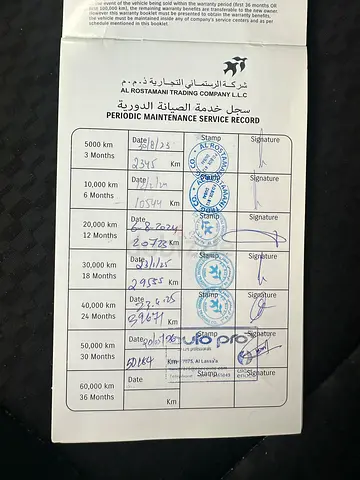 of the event of the vehicle being sold within the warranty period (first 36 months OR
first 100,000 km), the remaining warranty benefits are transferable to the new owner.
However this warranty booklet must be presented to obtain the warranty benefits.
the vehicle must be maintained inside any of company's service centers and as per
schedule mentioned in this booklet.
شركة الرستماني التجارية ذ.م.م
AL ROSTAMANI TRADING COMPANY L.L.C
سجل خدمة الصيانة الدورية
PERIODIC MAINTENANCE SERVICE RECORD
5000 km
3 Months
Date
2345 Km
Stamp
AL ROSTAMANI
Signature
10,000 km
6 Months
Date
10544 Km
Stamp
Signature
20,000 km
12 Months
Date
6-8-2024
20723 Km
Stamp
Signature
30,000 km
18 Months
Date
23/1/25
29535 Km
Stamp
Signature
40,000 km
24 Months
Date
39671 Km
Stamp
Signature
50,000 km
30 Months
Date
50264 Km
Stamp
auto pro
Signature
60,000 km
36 Months
Date
Km
Stamp
Signature